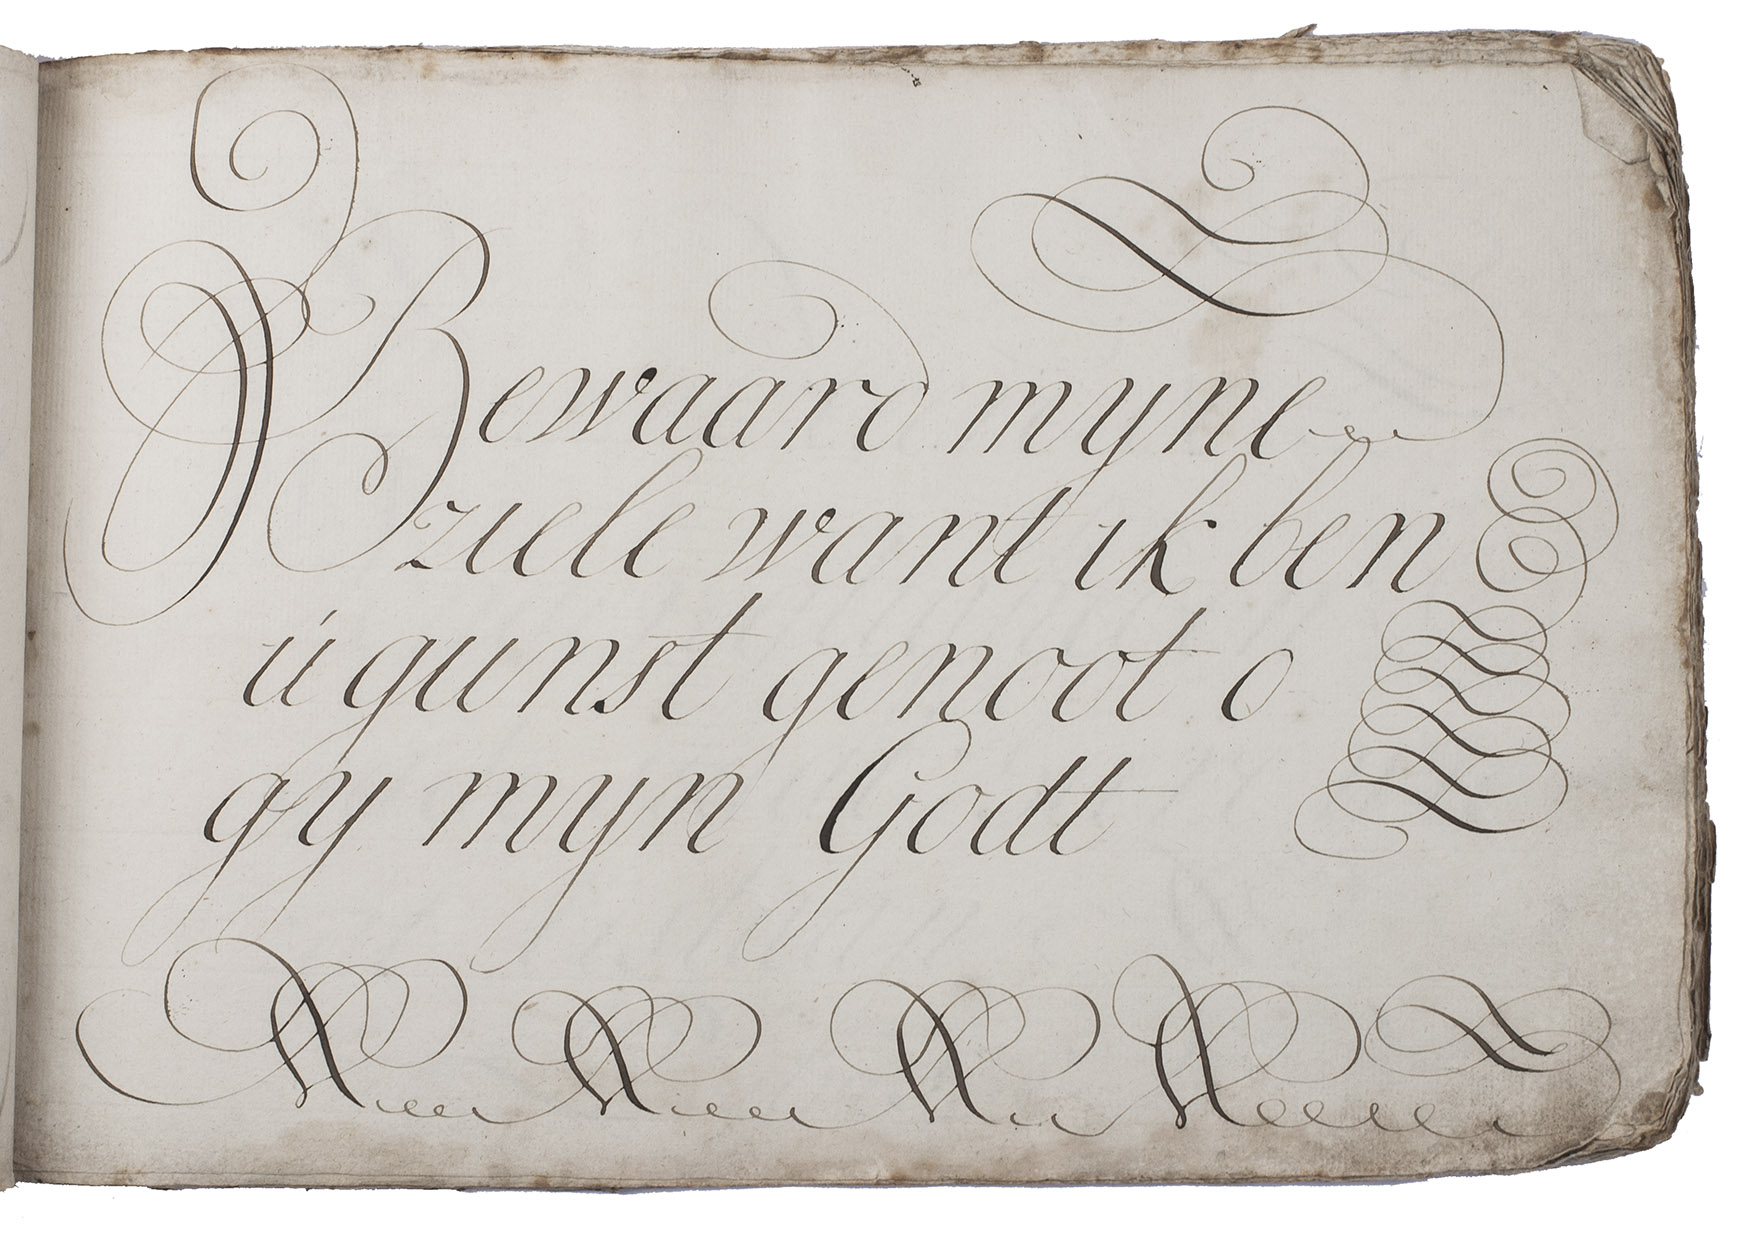 Bewaard myne
ziele want ik ben
ú gunst genoot o
gy myn Godt